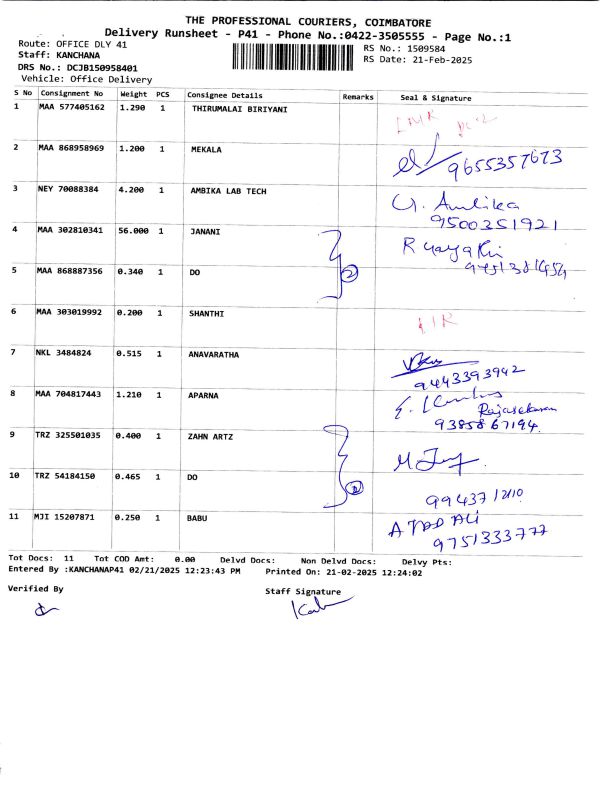 THE PROFESSIONAL COURIERS, COIMBATORE
Delivery Runsheet - P41 - Phone No.:0422-3505555 - Page No.:1
Route: OFFICE DLY 41
RS No.: 1509584
Staff: KANCHANA
RS Date: 21-Feb-2025
DRS No.: DCJB150958401
Vehicle: Office Delivery
S No Consignment No Weight PCS Consignee Details Remarks Seal & Signature
1 MAA 577405162 1.290 1 THIRUMALAI BIRIYANI
2 MAA 868958969 1.200 1 MEKALA 9655357673
3 NEY 70088384 4.200 1 AMBIKA LAB TECH G. Ambika
9500351921
4 MAA 302810341 56.000 1 JANANI
2
5 MAA 868887356 0.340 1 DO
6 MAA 303019992 0.200 1 SHANTHI
7 NKL 3484824 0.515 1 ANAVARATHA
9443393942
8 MAA 704817443 1.210 1 APARNA
Rajasekaran
9385867194
9 TRZ 325501035 0.400 1 ZAHN ARTZ
10 TRZ 54184150 0.465 1 DO
11 MJI 15207871 0.250 1 BABU
9751333777
Tot Docs: 11 Tot COD Amt: 0.00 Delvd Docs: Non Delvd Docs: Delvy Pts:
Entered By :KANCHANAP41 02/21/2025 12:23:43 PM Printed On: 21-02-2025 12:24:02
Verified By
Staff Signature